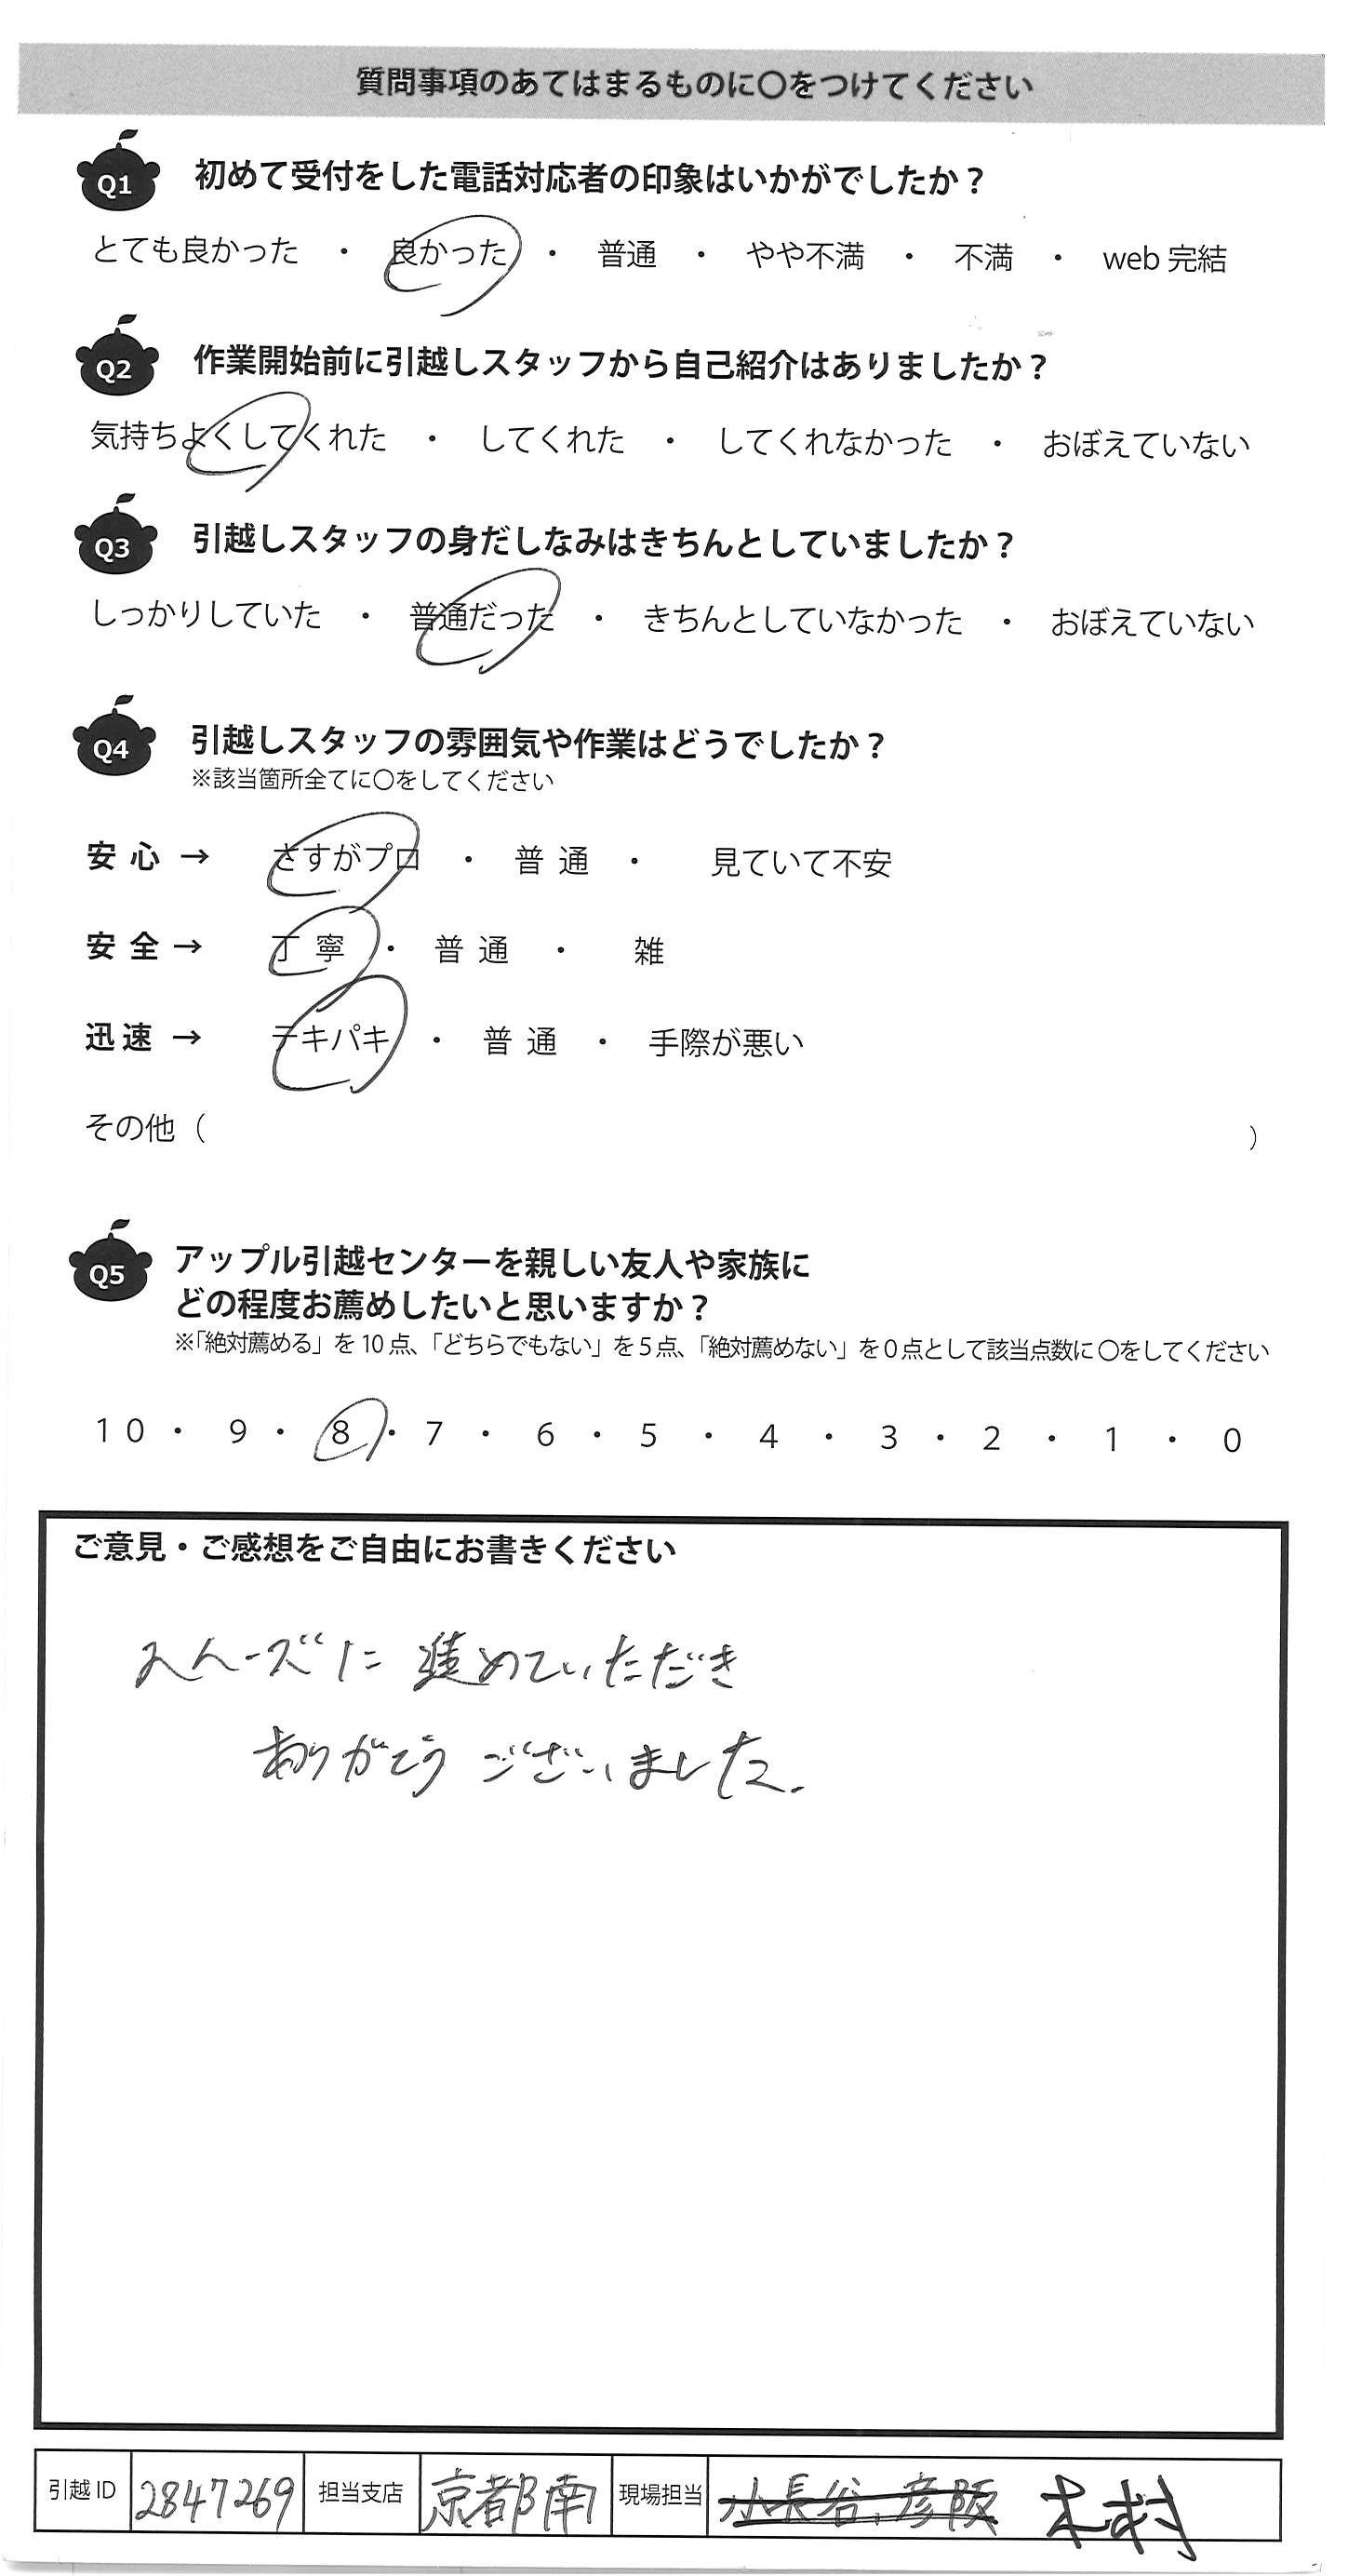 質問事項のあてはまるものに〇をつけてください
Q1 初めて受付をした電話対応者の印象はいかがでしたか？
とても良かった ・ 良かった ・ 普通 ・ やや不満 ・ 不満 ・ web 完結
Q2 作業開始前に引越しスタッフから自己紹介はありましたか？
気持ちよくしてくれた ・ してくれた ・ してくれなかった ・ おぼえていない
Q3 引越しスタッフの身だしなみはきちんとしていましたか？
しっかりしていた ・ 普通だった ・ きちんとしていなかった ・ おぼえていない
Q4 引越しスタッフの雰囲気や作業はどうでしたか？
※該当箇所全てに〇をしてください
安心 → さすがプロ ・ 普通 ・ 見ていて不安
安全 → 丁寧 ・ 普通 ・ 雑
迅速 → テキパキ ・ 普通 ・ 手際が悪い
その他（ ）
Q5 アップル引越センターを親しい友人や家族に
どの程度お薦めしたいと思いますか？
※「絶対薦める」を10点、「どちらでもない」を5点、「絶対薦めない」を0点として該当点数に〇をしてください
10 ・ 9 ・ 8 ・ 7 ・ 6 ・ 5 ・ 4 ・ 3 ・ 2 ・ 1 ・ 0
ご意見・ご感想をご自由にお書きください
スムーズに進めていただき
ありがとうございました。
引越ID 2847269 担当支店 京都南 現場担当 小長谷、彦阪 木村